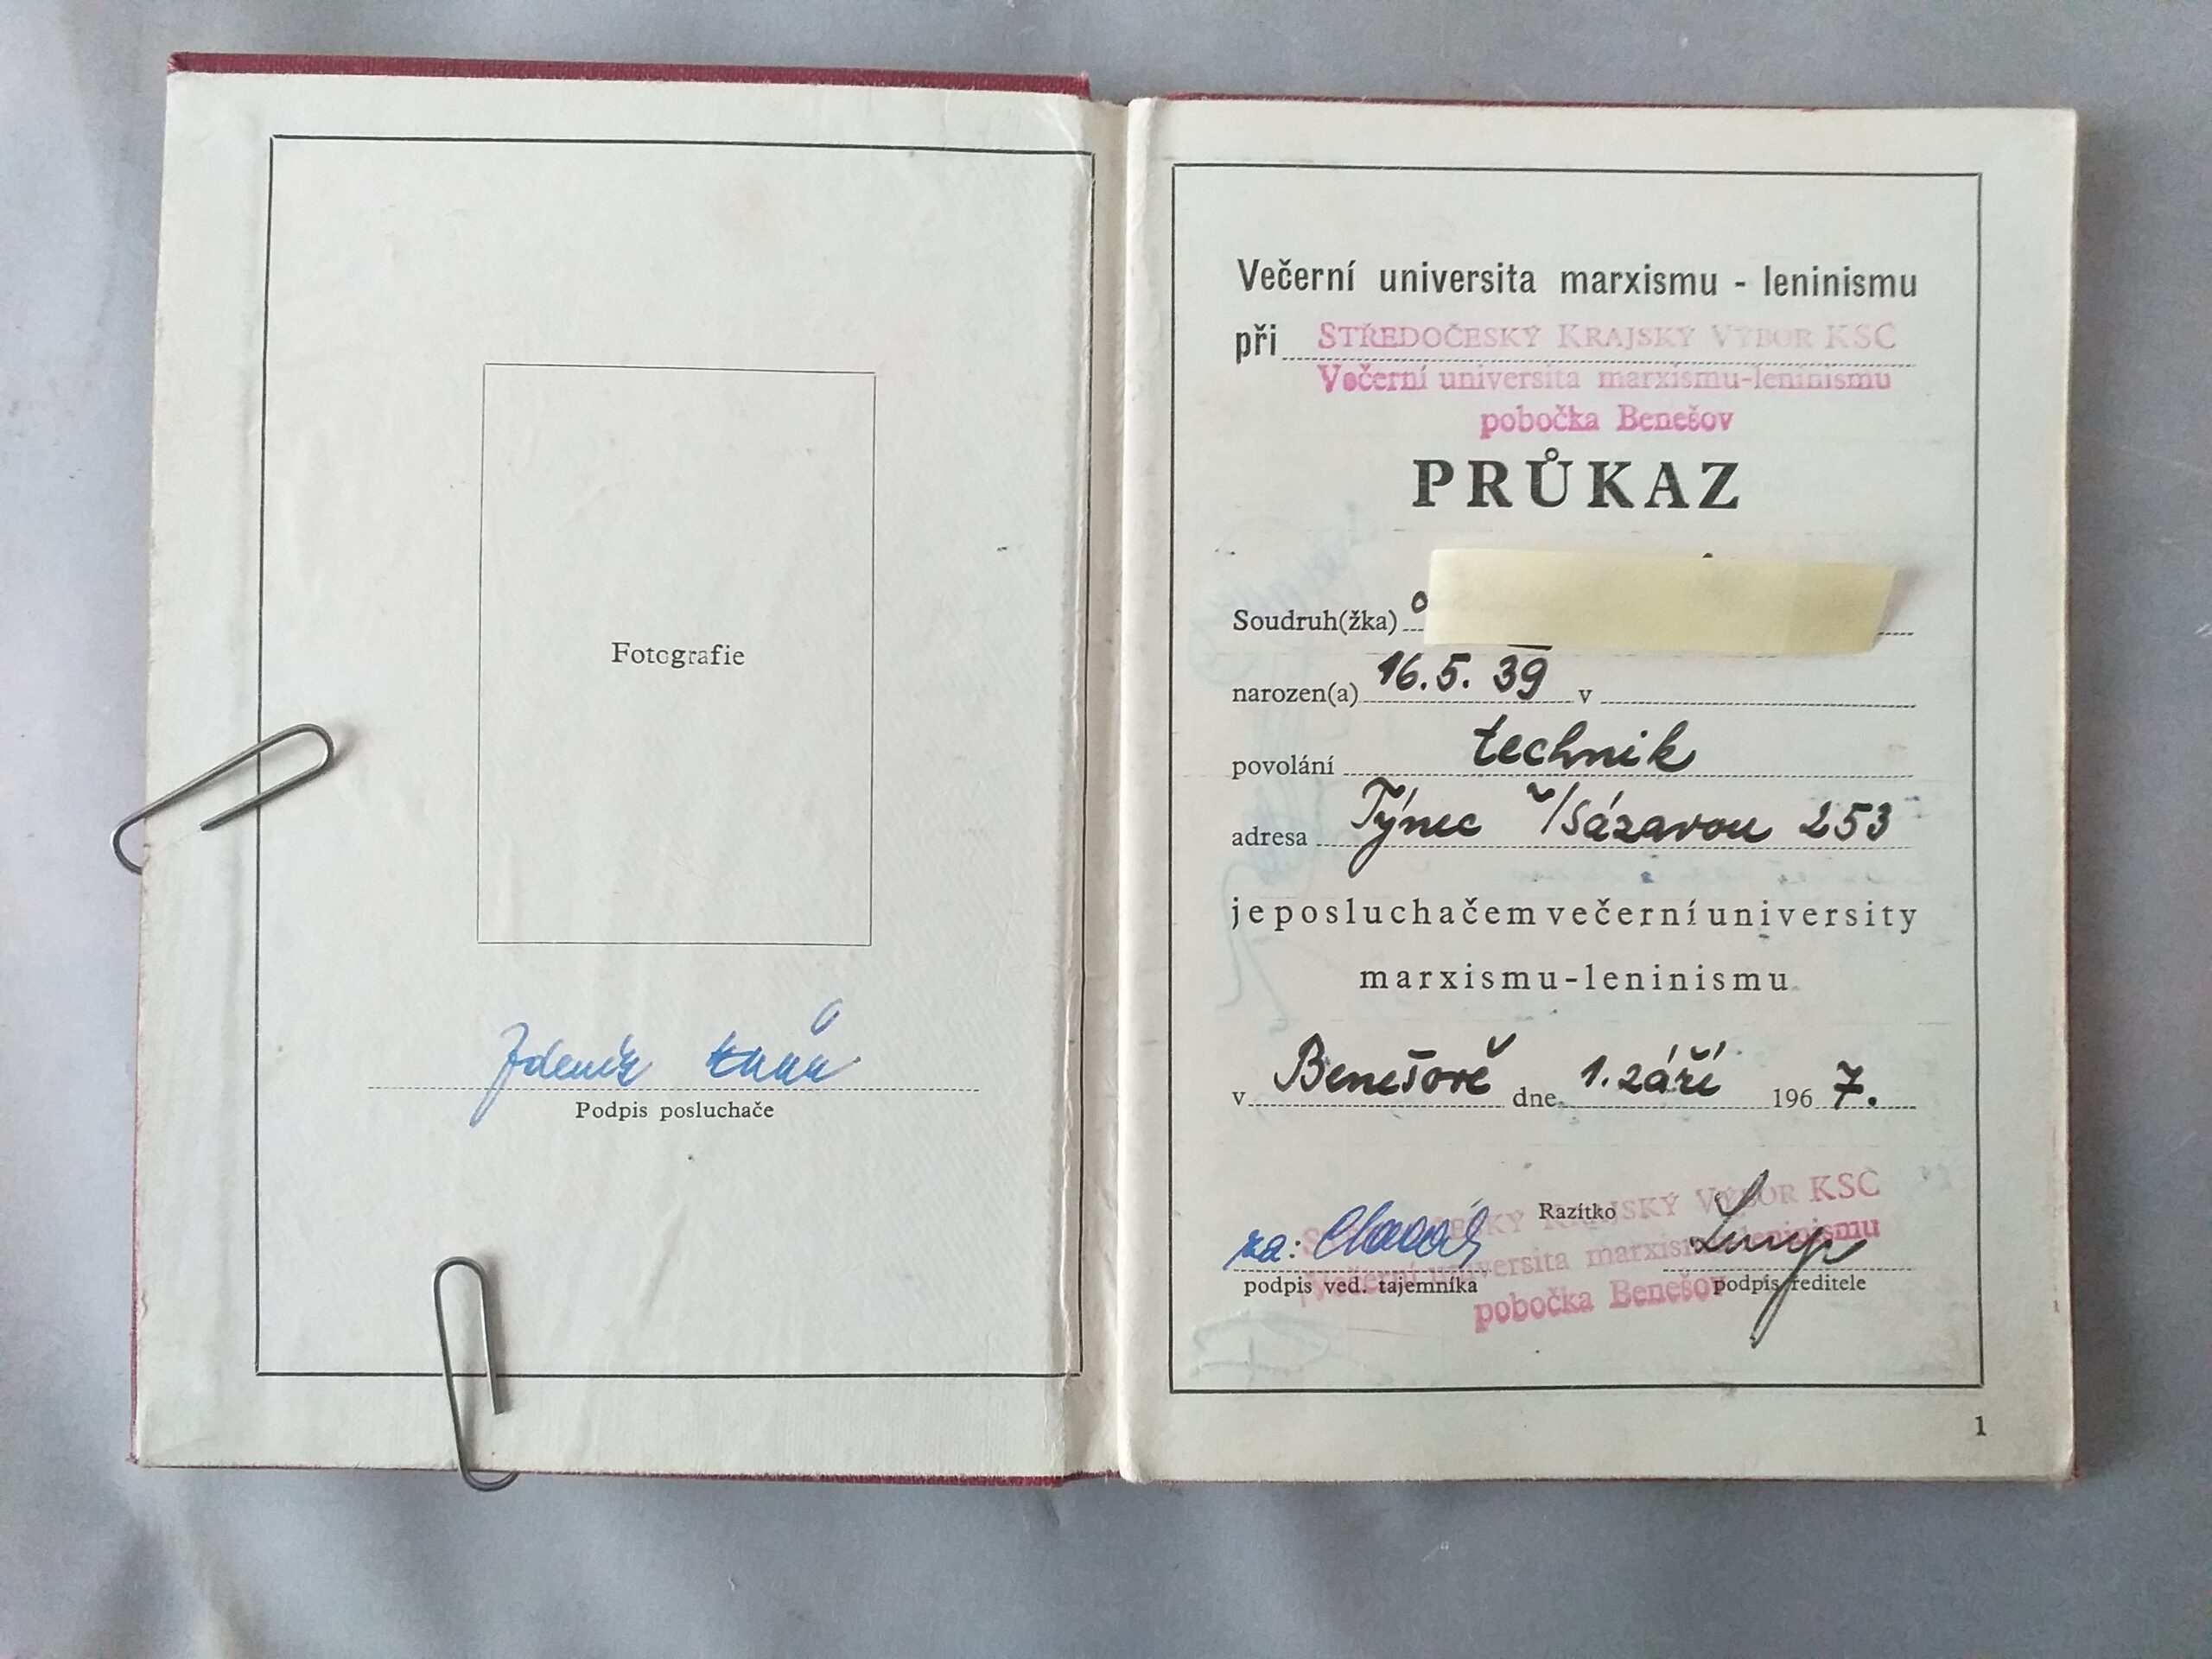 Fotografie
Zdeněk
Podpis posluchače
Večerní universita marxismu - leninismu
při STŘEDOČESKÝ KRAJSKÝ VÝBOR KSČ
Večerní universita marxismu-leninismu
pobočka Benešov
PRŮKAZ
Soudruh(žka)
narozen(a) 16.5.39 v
povolání technik
adresa Týnec n/Sázavou 253
je posluchačem večerní university
marxismu-leninismu
v Benešově dne 1. září 1967.
STŘEDOČESKÝ KRAJSKÝ VÝBOR KSČ
Večerní universita marxismu-leninismu
pobočka Benešov
Razítko
za:
podpis ved. tajemníka podpis ředitele
1